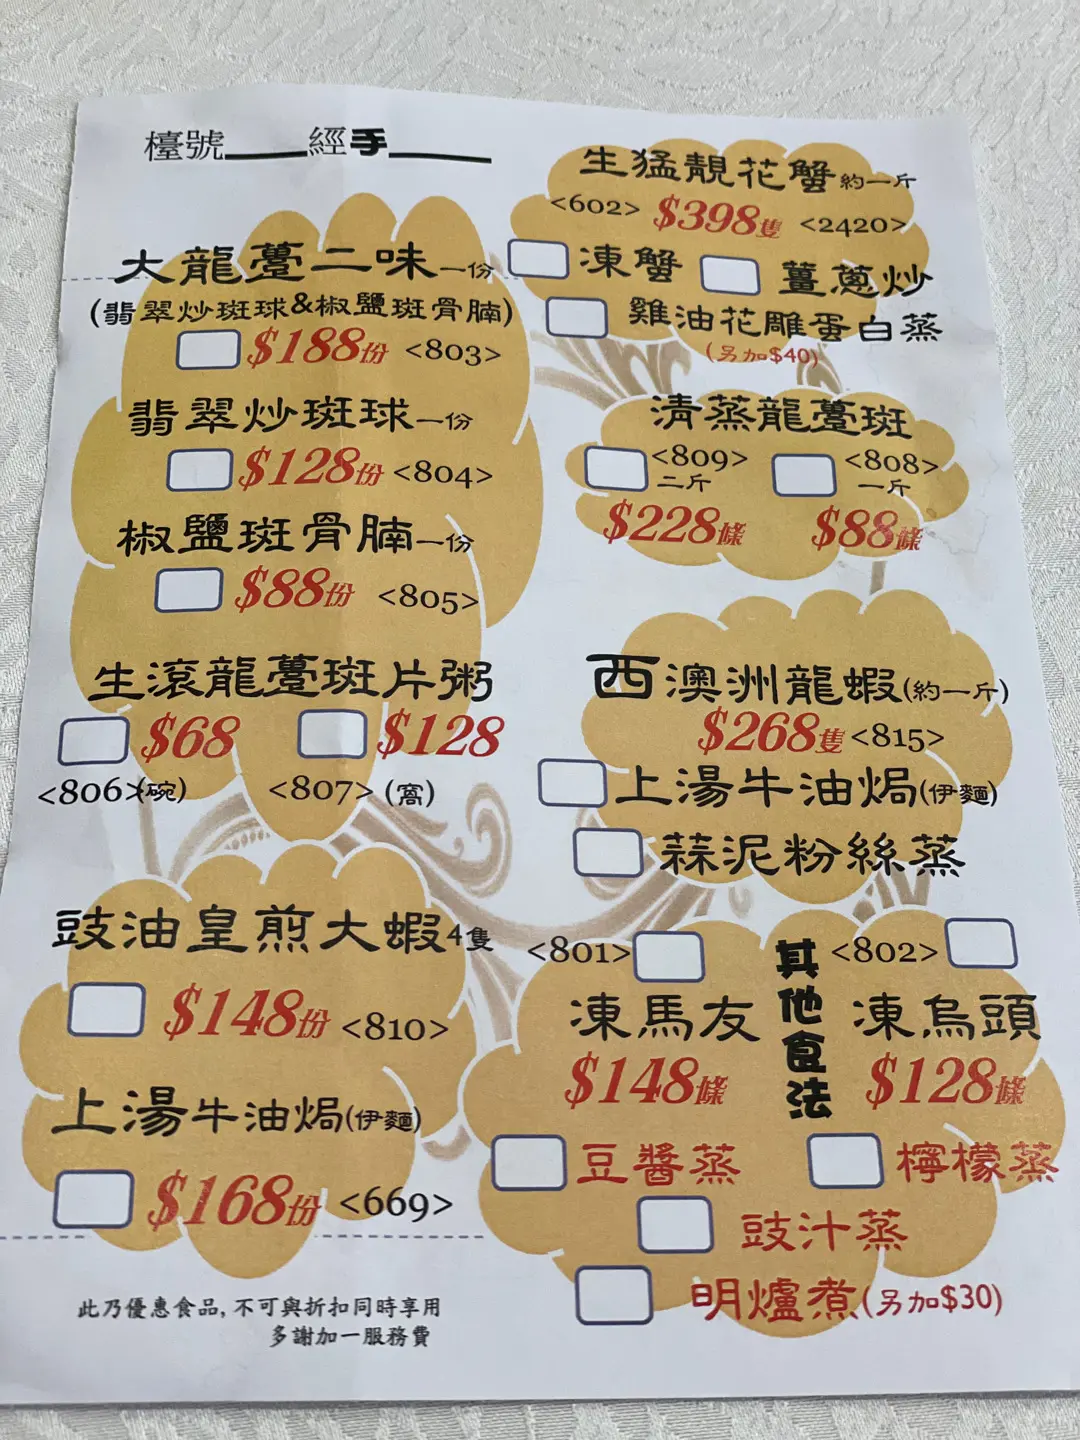 檯號____經手____
大龍躉二味一份
(翡翠炒斑球&椒鹽斑骨腩)
$188份 <803>
翡翠炒斑球一份
$128份 <804>
椒鹽斑骨腩一份
$88份 <805>
生滾龍躉斑片粥
$68 $128
<806>(碗) <807>(窩)
豉油皇煎大蝦4隻
$148份 <810>
上湯牛油焗(伊麵)
$168份 <669>
此乃優惠食品,不可與折扣同時享用
多謝加一服務費
生猛靚花蟹約一斤
<602> $398隻 <2420>
凍蟹 薑蔥炒
雞油花雕蛋白蒸
(另加$40)
清蒸龍躉斑
<809> <808>
二斤 一斤
$228條 $88條
西澳洲龍蝦(約一斤)
$268隻 <815>
上湯牛油焗(伊麵)
蒜泥粉絲蒸
<801> <802>
凍馬友 凍烏頭
$148條 $128條
其他食法
豆醬蒸 檸檬蒸
豉汁蒸
明爐煮(另加$30)